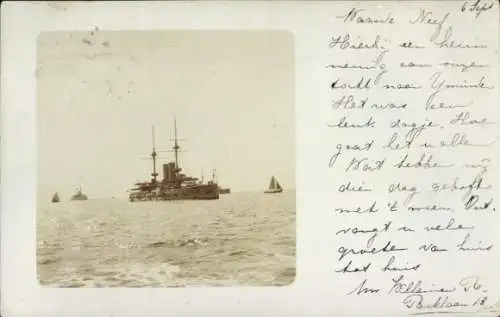 6 Sept
Waarde Neef
Hierbij een herin
nering aan onzen
tocht naar Ymuiden
Het was een
leuk dagje. Hoe
gaat het u alle
Wat hebben wij
die dag gehoft
met 't weer. Ont
vangt u vele
groete van huis
tot huis
Parklaan 13.